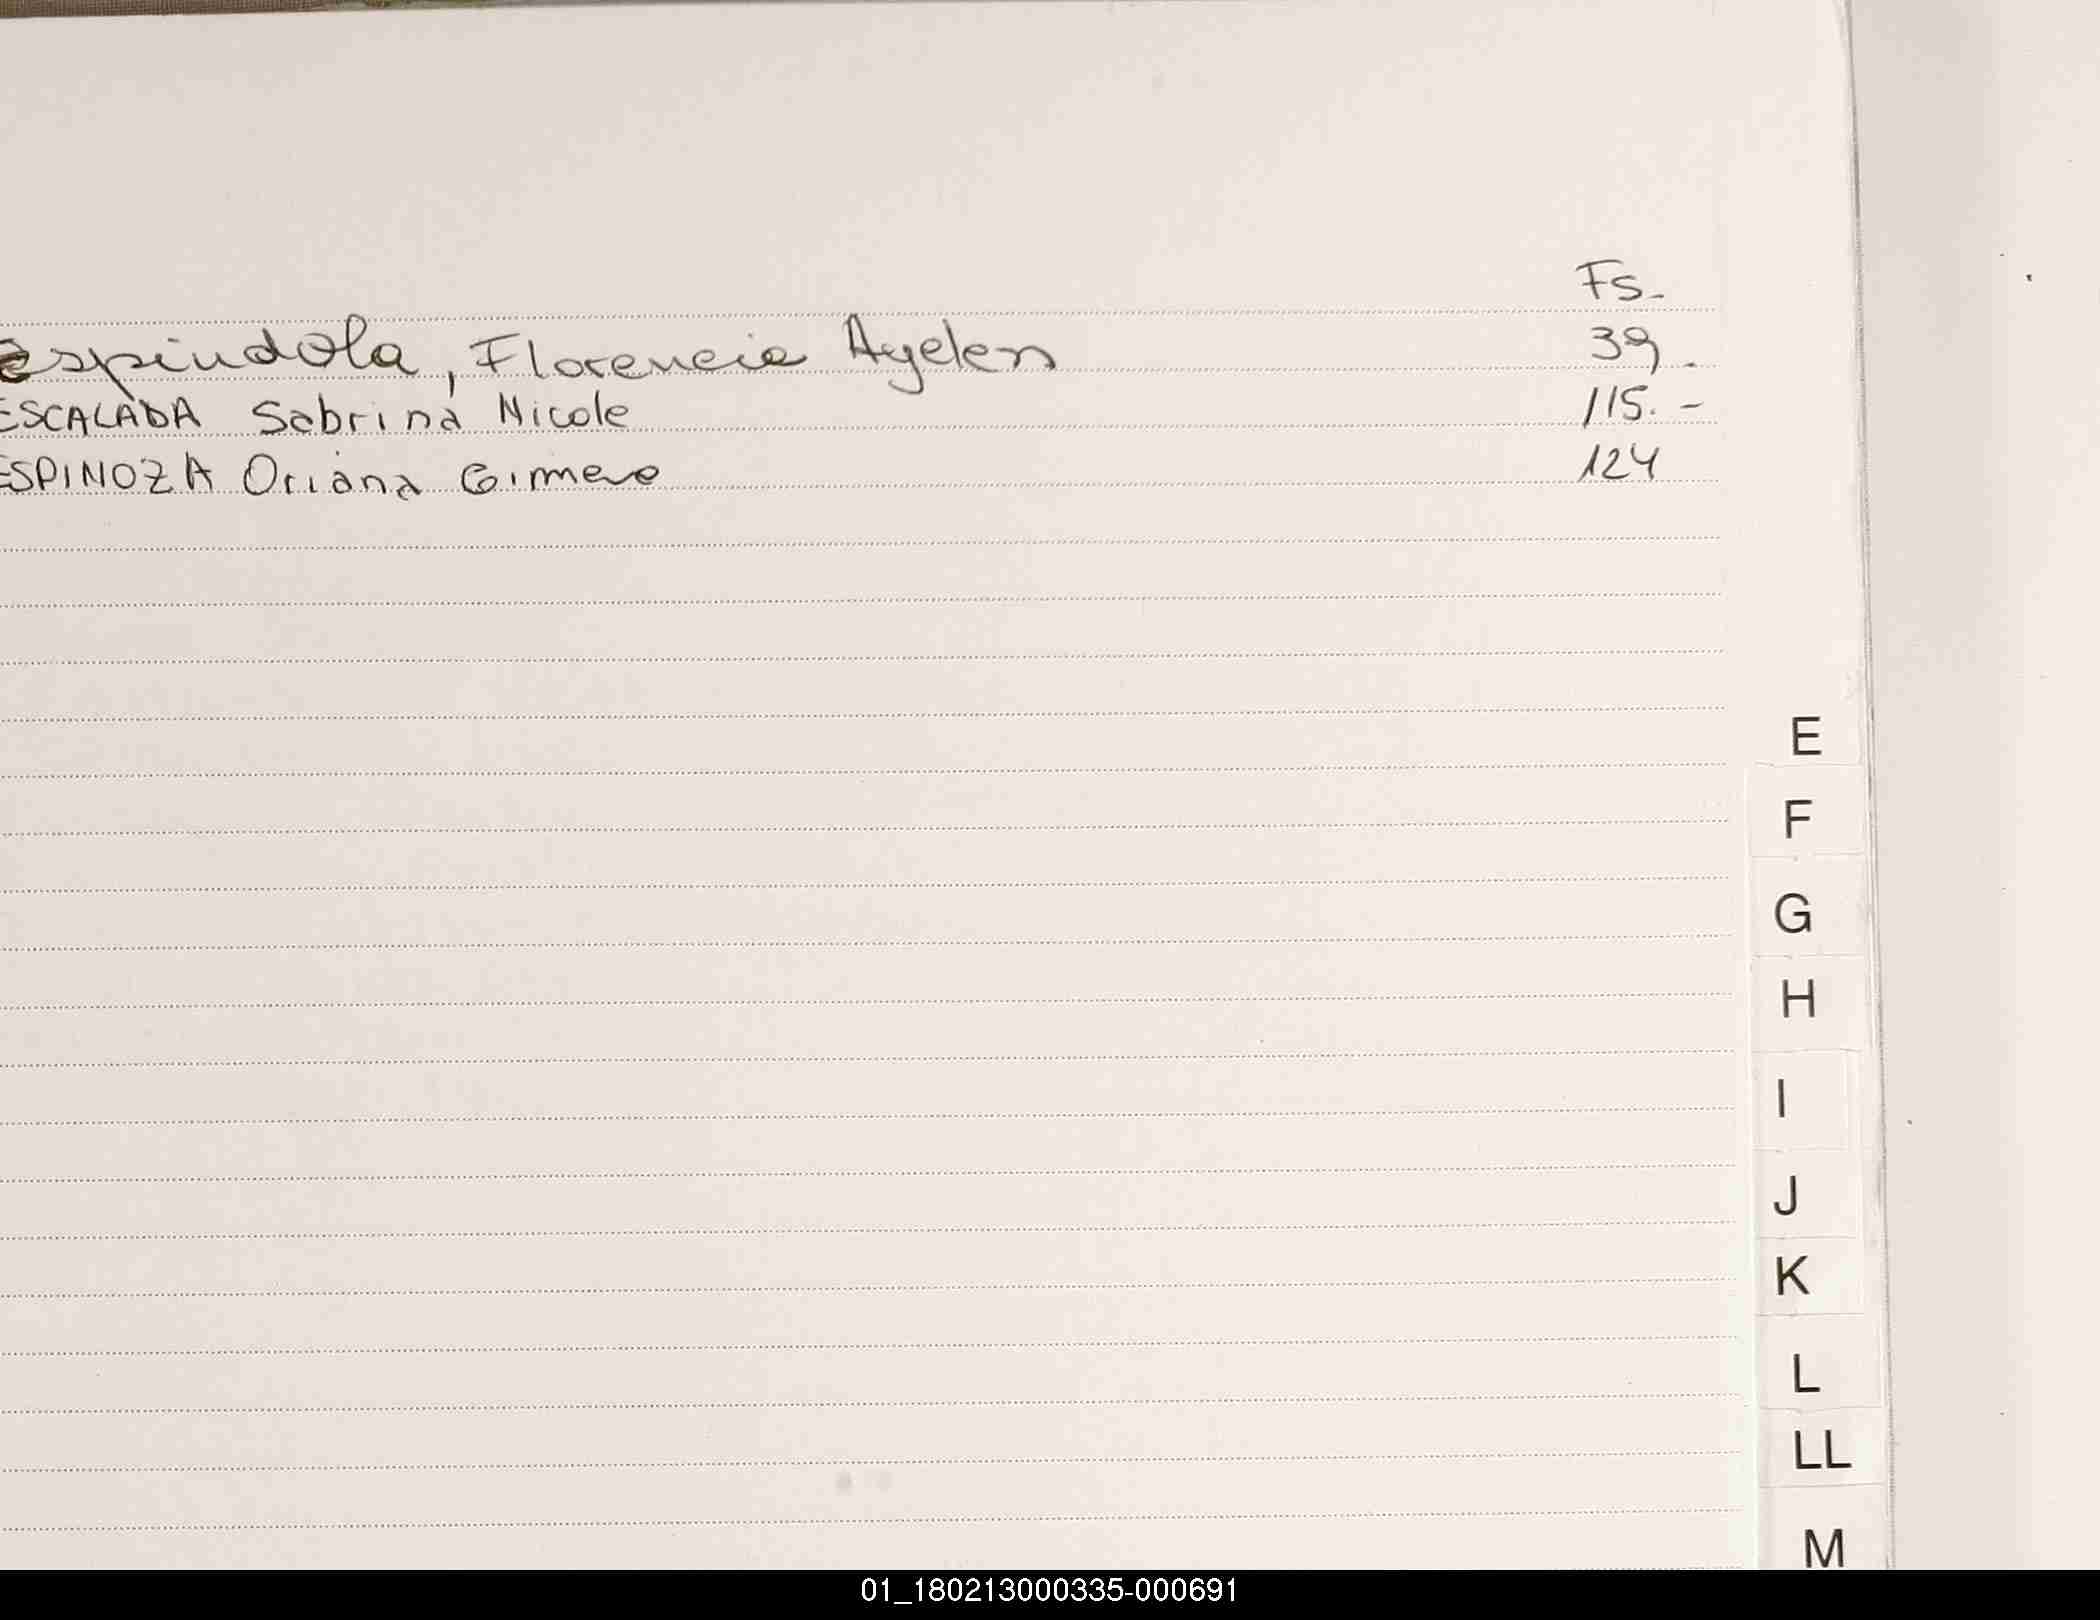 Fs.
Espindola, Florencia Ayelen 39.
ESCALADA Sabrina Nicole 115. -
ESPINOZA Oriana 124
E
F
G
H
I
J
K
L
LL
M
01_180213000335-000691